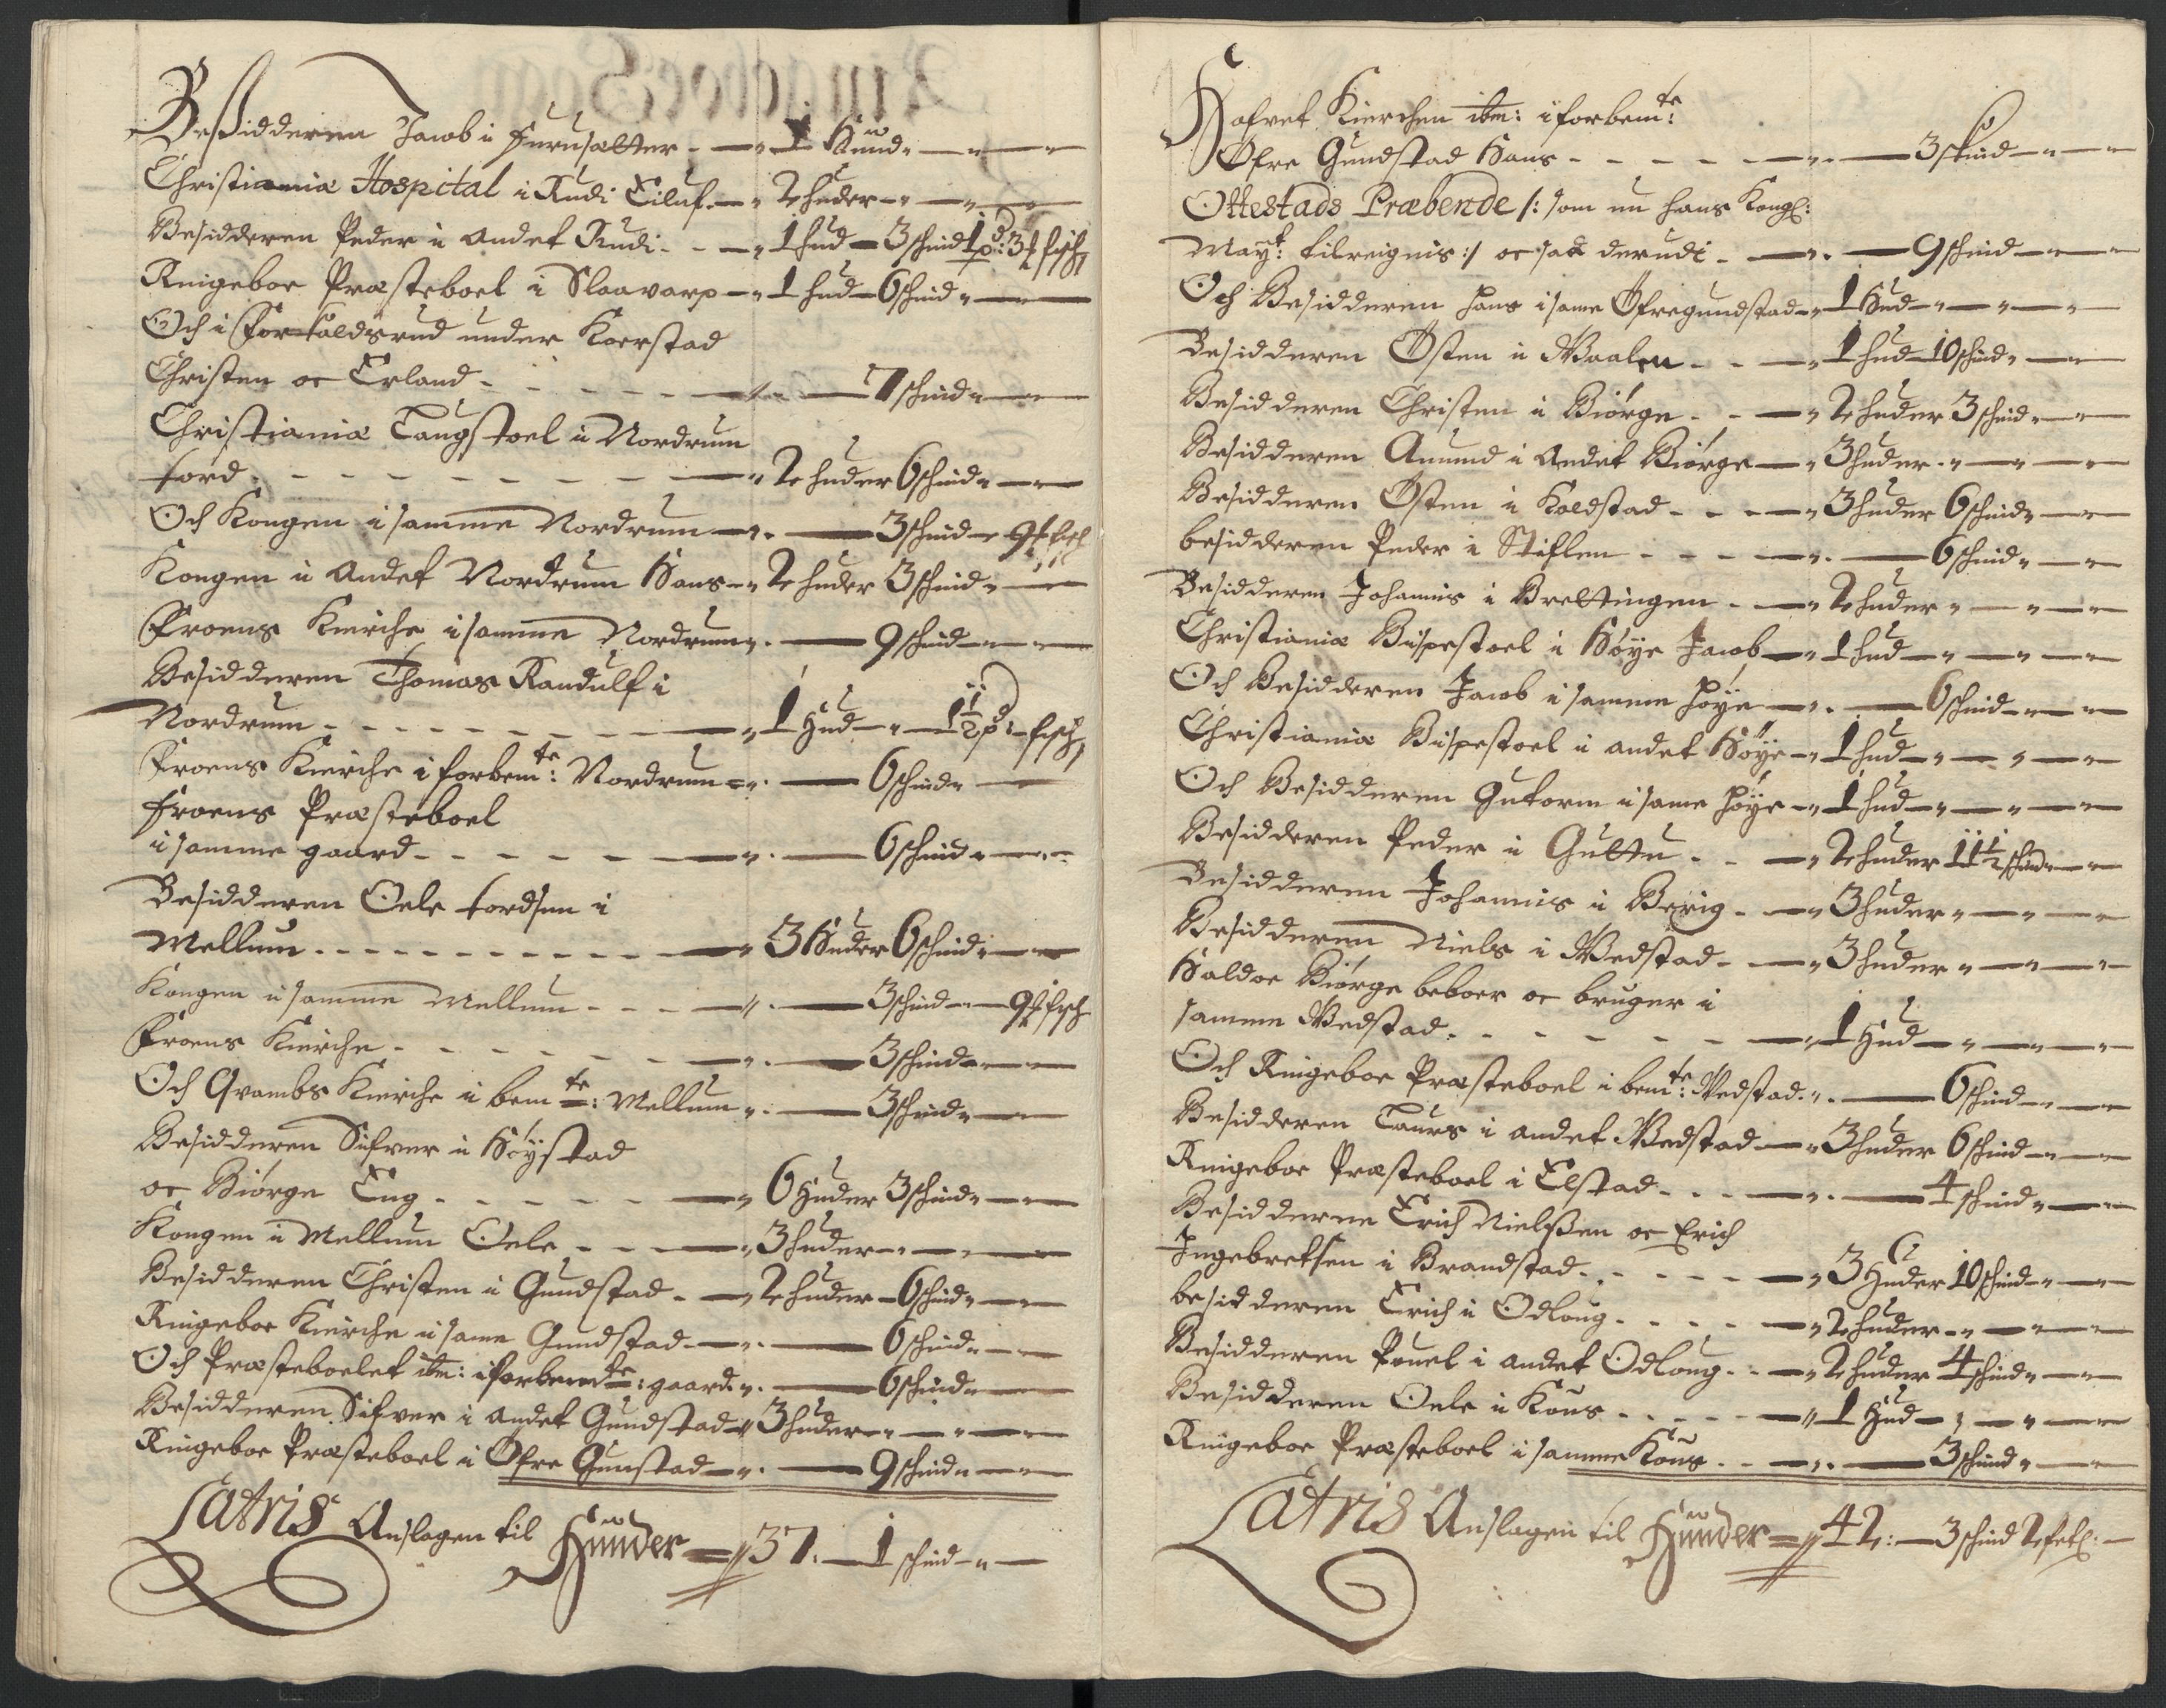 Besidderen Jacob i Furusætter - - 1 Huud
Christiania Hospital i Rudi Eiluf - 2 huder
Besidderen Peder i andet Rudi - - 1 hud - 3 schind 1 pd: 3 ℔ fisch
Ringeboe Præsteboel i Slaavarp - 1 hud - 6 schind
Och i Forkaldsrud under Koerstad
Christen oc Erland - - - 7 schind
Christiania Laugstoel i Nordrum
tord - - - 2 huder 6 schind
Och Kongen i samme Nordrum - 3 schind - 9 ℔ fisch
Kongen i andet Nordrum Hans - 2 huder 3 schind
Froens Kierche i samme Nordrum - 9 schind
Besidderen Thomas Randulf i
Nordrum - - - 1 Hud - 1½ pd: fisch
Froens Kierche i forbemte: Nordrum - 6 schind
Froens Præsteboel
i samme gaard - - - 6 schind
Besidderen Oele tordsen i
Mellum - - - 3 Huder 6 schind
Kongen i samme Mellum - - - 3 schind - 9 ℔ fisch
Froens Kierche - - - 3 schind
Och Qvambs Kierche i bemte: Mellum - 3 schind
Besidderen Sifver i Höystad
oc Biörge Eng - - - 6 Huder 3 schind
Kongen i Mellum Oele - - - 3 huder
Besidderen Christen i Gundstad - 2 huder - 6 schind
Ringeboe Kierche i same Gundstad - 6 schind
Och Præsteboelet ibm: i forbemte: gaard - 6 schind
Besidderen Sifver i andet Gundstad - 3 huder
Ringeboe Præsteboel i Öfre Gunstad - 9 schind
Latris Anslagen til Huuder - 37. - 1 schind
Hafret Kierchen ibm: i forbemte:
Öfre Gundstad Hans - - - 3 skind
Ottestads Præbende /: som nu hans Kongl:
Mayt: tilreignis :/ oc saa derudi - 9 schind
Och Besidderen Hans i same Öfregundstad - 1 Hud
Besidderen Östen i Waalen - - 1 hud 10 schind
Besidderen Christen i Biörge - - 2 huder 3 schind
Besidderen Amund i andet Biörge - 3 huder
Besidderen Östen i Koldstad - - - 3 huder 6 schind
besidderen Peder i Stiflen - - - 6 schind
Besidderen Johannis i Brettingen - 2 huder
Christiania Bispestoel i Höye Jacob - 1 hud
Och Besidderen Jacob i samme höye - 6 schind
Christiania Bispestoel i andet Höye - 1 hud
Och Besidderen Gutorm i same höye - 1 hud
Besidderen Peder i Gultu - - 2 huder 11½ schind
Besidderen Johannis i Berig - 3 huder
Besidderen Niels i Wedstad - 3 huder
Haldor Biörge beboer oc bruger i
samme Wedstad - - - 1 Hud
Och Ringeboe Præsteboel i bemte: Wedstad - 6 schind
Besidderen Laurs i andet Wedstad - 3 huder 6 schind
Ringeboe Præsteboel i Elstad - - - 4 schind
Besidderne Erich Nielssen oc Erich
Ingebretsen i Brandstad - - - 3 Huder 10 schind
besidderen Erich i Odloug - - - 2 huder
Besidderen Pouel i andet Odloug - - 2 huder 4 schind
Besidderen Oele i Kous - - - 1 Hud
Ringeboe Præsteboel i samme Kous - - 3 schind
Latris Anslagen til Huuder - 42: - 3 schind